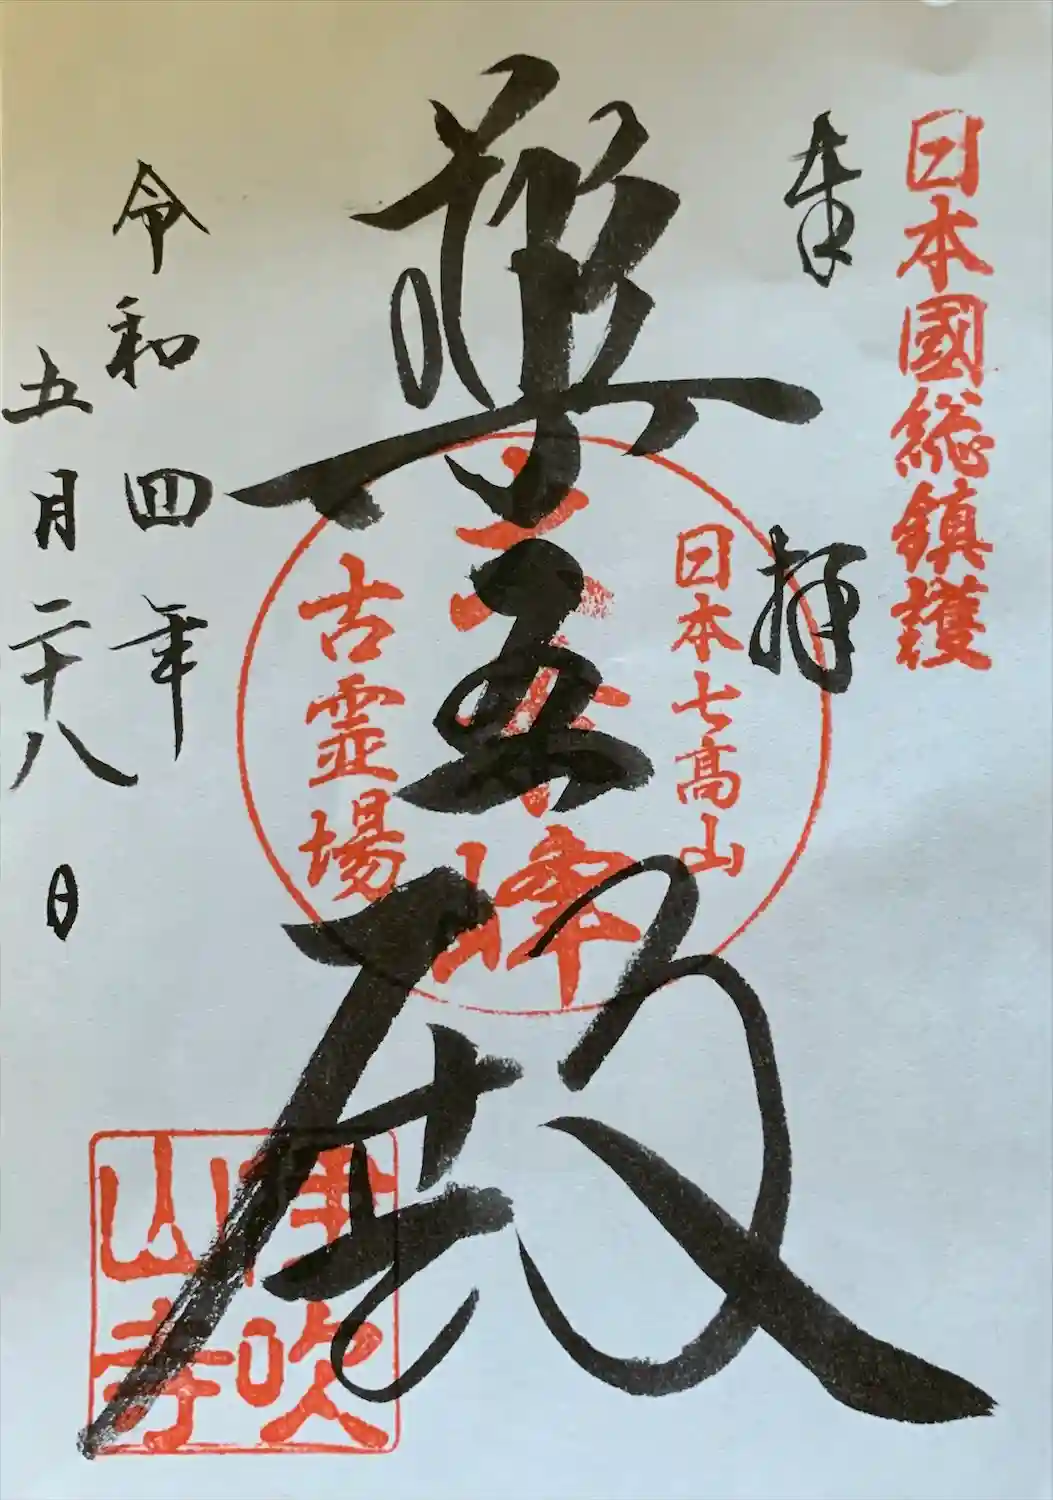 日本國総鎮護
奉拝
日本七高山
峰
古霊場
殿
令和四年
五月二十八日
伊吹山寺